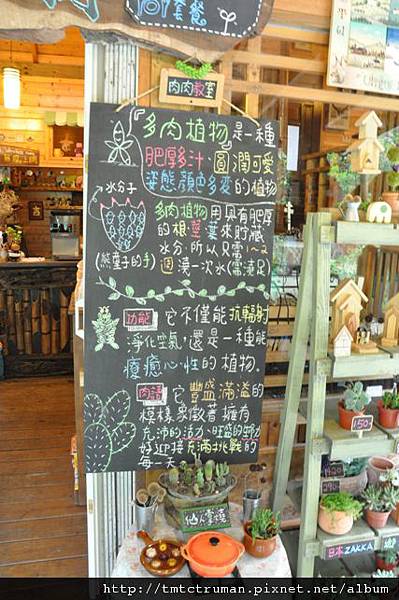 DIY套餐
肉肉教室
多肉植物是一種
肥厚多汁、圓潤可愛
姿態顏色多變的植物
水分子
(熊童子的手)
多肉植物用具有肥厚
的根、莖、葉來貯藏
水分,所以只需1~2
週澆一次水(需澆足)
功能 它不僅能抗輻射
淨化空氣,還是一種能
療癒心性的植物。
肉語 它豐盛滿溢的
模樣象徵著擁有
充沛的活力、旺盛的精力
好迎接充滿挑戰的
每一天
仙人掌燒
150
290
日本ZAKKA
http://tmtctruman.pixnet.net/album